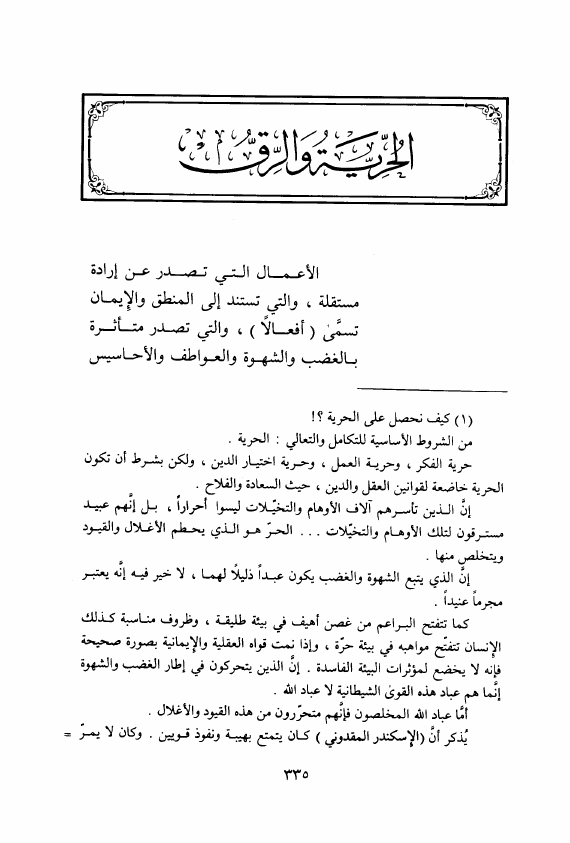 الحُرِّيَّة وَالرِّق
الأعـمـــال الـتـي تـصـــدر عـن إرادة
مستقلة ، والتي تستند إلى المنطق والإيمـان
تسمَّى ( أفعــالاً ) ، والتي تصدر متــأثــرة
بـالغضب والشهـوة والعـواطف والأحـاسيس
(١) كيف نحصل على الحرية ؟!
من الشروط الأساسية للتكامل والتعالي : الحرية .
حرية الفكر ، وحريـة العمل ، وحريـة اختيـار الدين ، ولكن بشرط أن تكون
الحرية خاضعة لقوانين العقل والدين ، حيث السعادة والفلاح .
إنَّ الـذين تأسـرهم آلاف الأوهام والتخيّـلات ليسوا أحراراً ، بـل إنَّهم عبيـد
مسترقون لتلك الأوهـام والتخيّلات ... الحـرّ هـو الـذي يحـطم الأغـلال والقيـود
ويتخلص منها .
إنَّ الذي يتبع الشهوة والغضب يكون عبـداً ذليلًا لهمـا ، لا خير فيـه إنَّه يعتبـر
مجرماً عنيداً .
كما تتفتح البـراعم من غصن أهيف في بيئة طليقـة ، وظروف منـاسبة كـذلك
الإنسان تتفتّح مواهبه في بيئة حرّة ، وإذا نمت قواه العقلية والإيمانية بصورة صحيحة
فإنه لا يخضع لمؤثرات البيئة الفاسدة . إنَّ الذين يتحركون في إطار الغضب والشهوة
إنَّما هم عباد هذه القوى الشيطانية لا عباد الله .
أمَّا عباد الله المخلصون فإنَّهم متحرّرون من هذه القيود والأغلال .
يُذكر أنَّ (الإسكندر المقدوني ) كـان يتمتع بهيبـة ونفوذ قـويين . وكـان لا يمـرّ =
٣٣٥